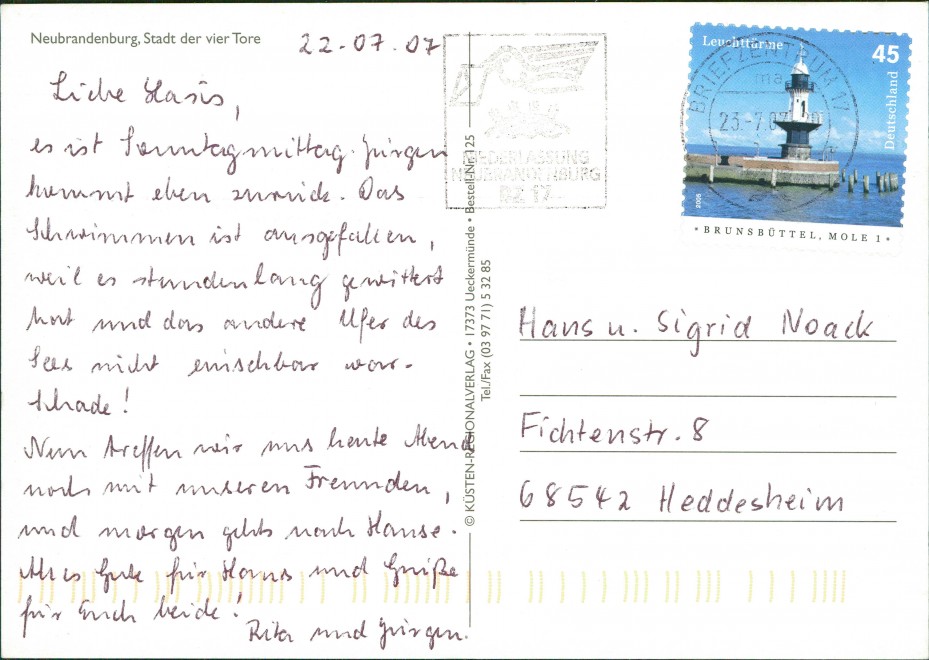 Neubrandenburg, Stadt der vier Tore
22.07.07
Liebe Hasis,
es ist Sonntagmittag. Jürgen
kommt eben zurück. Das
Schwimmen ist ausgefallen,
weil es stundenlang gewittert
hat und das andere Ufer des
Sees nicht einsehbar war.
Schade!
Nun treffen wir uns heute Abend
noch mit unseren Freunden,
und morgen gehts nach Hause.
Alles Gute für Hans und Grüße
für Euch beide!
Rita und Jürgen.
© KÜSTEN-REGIONALVERLAG • 17373 Ueckermünde • Bestell-Nr. 125
Tel./Fax (03 97 71) 5 32 85
NIEDERLASSUNG
NEUBRANDENBURG
BZ 17
BRIEFZENTRUM 17
ma
23.-7.07
Leuchttürme
45
Deutschland
2005
* BRUNSBÜTTEL, MOLE 1 *
Hans u. Sigrid Noack
Fichtenstr. 8
68542 Heddesheim